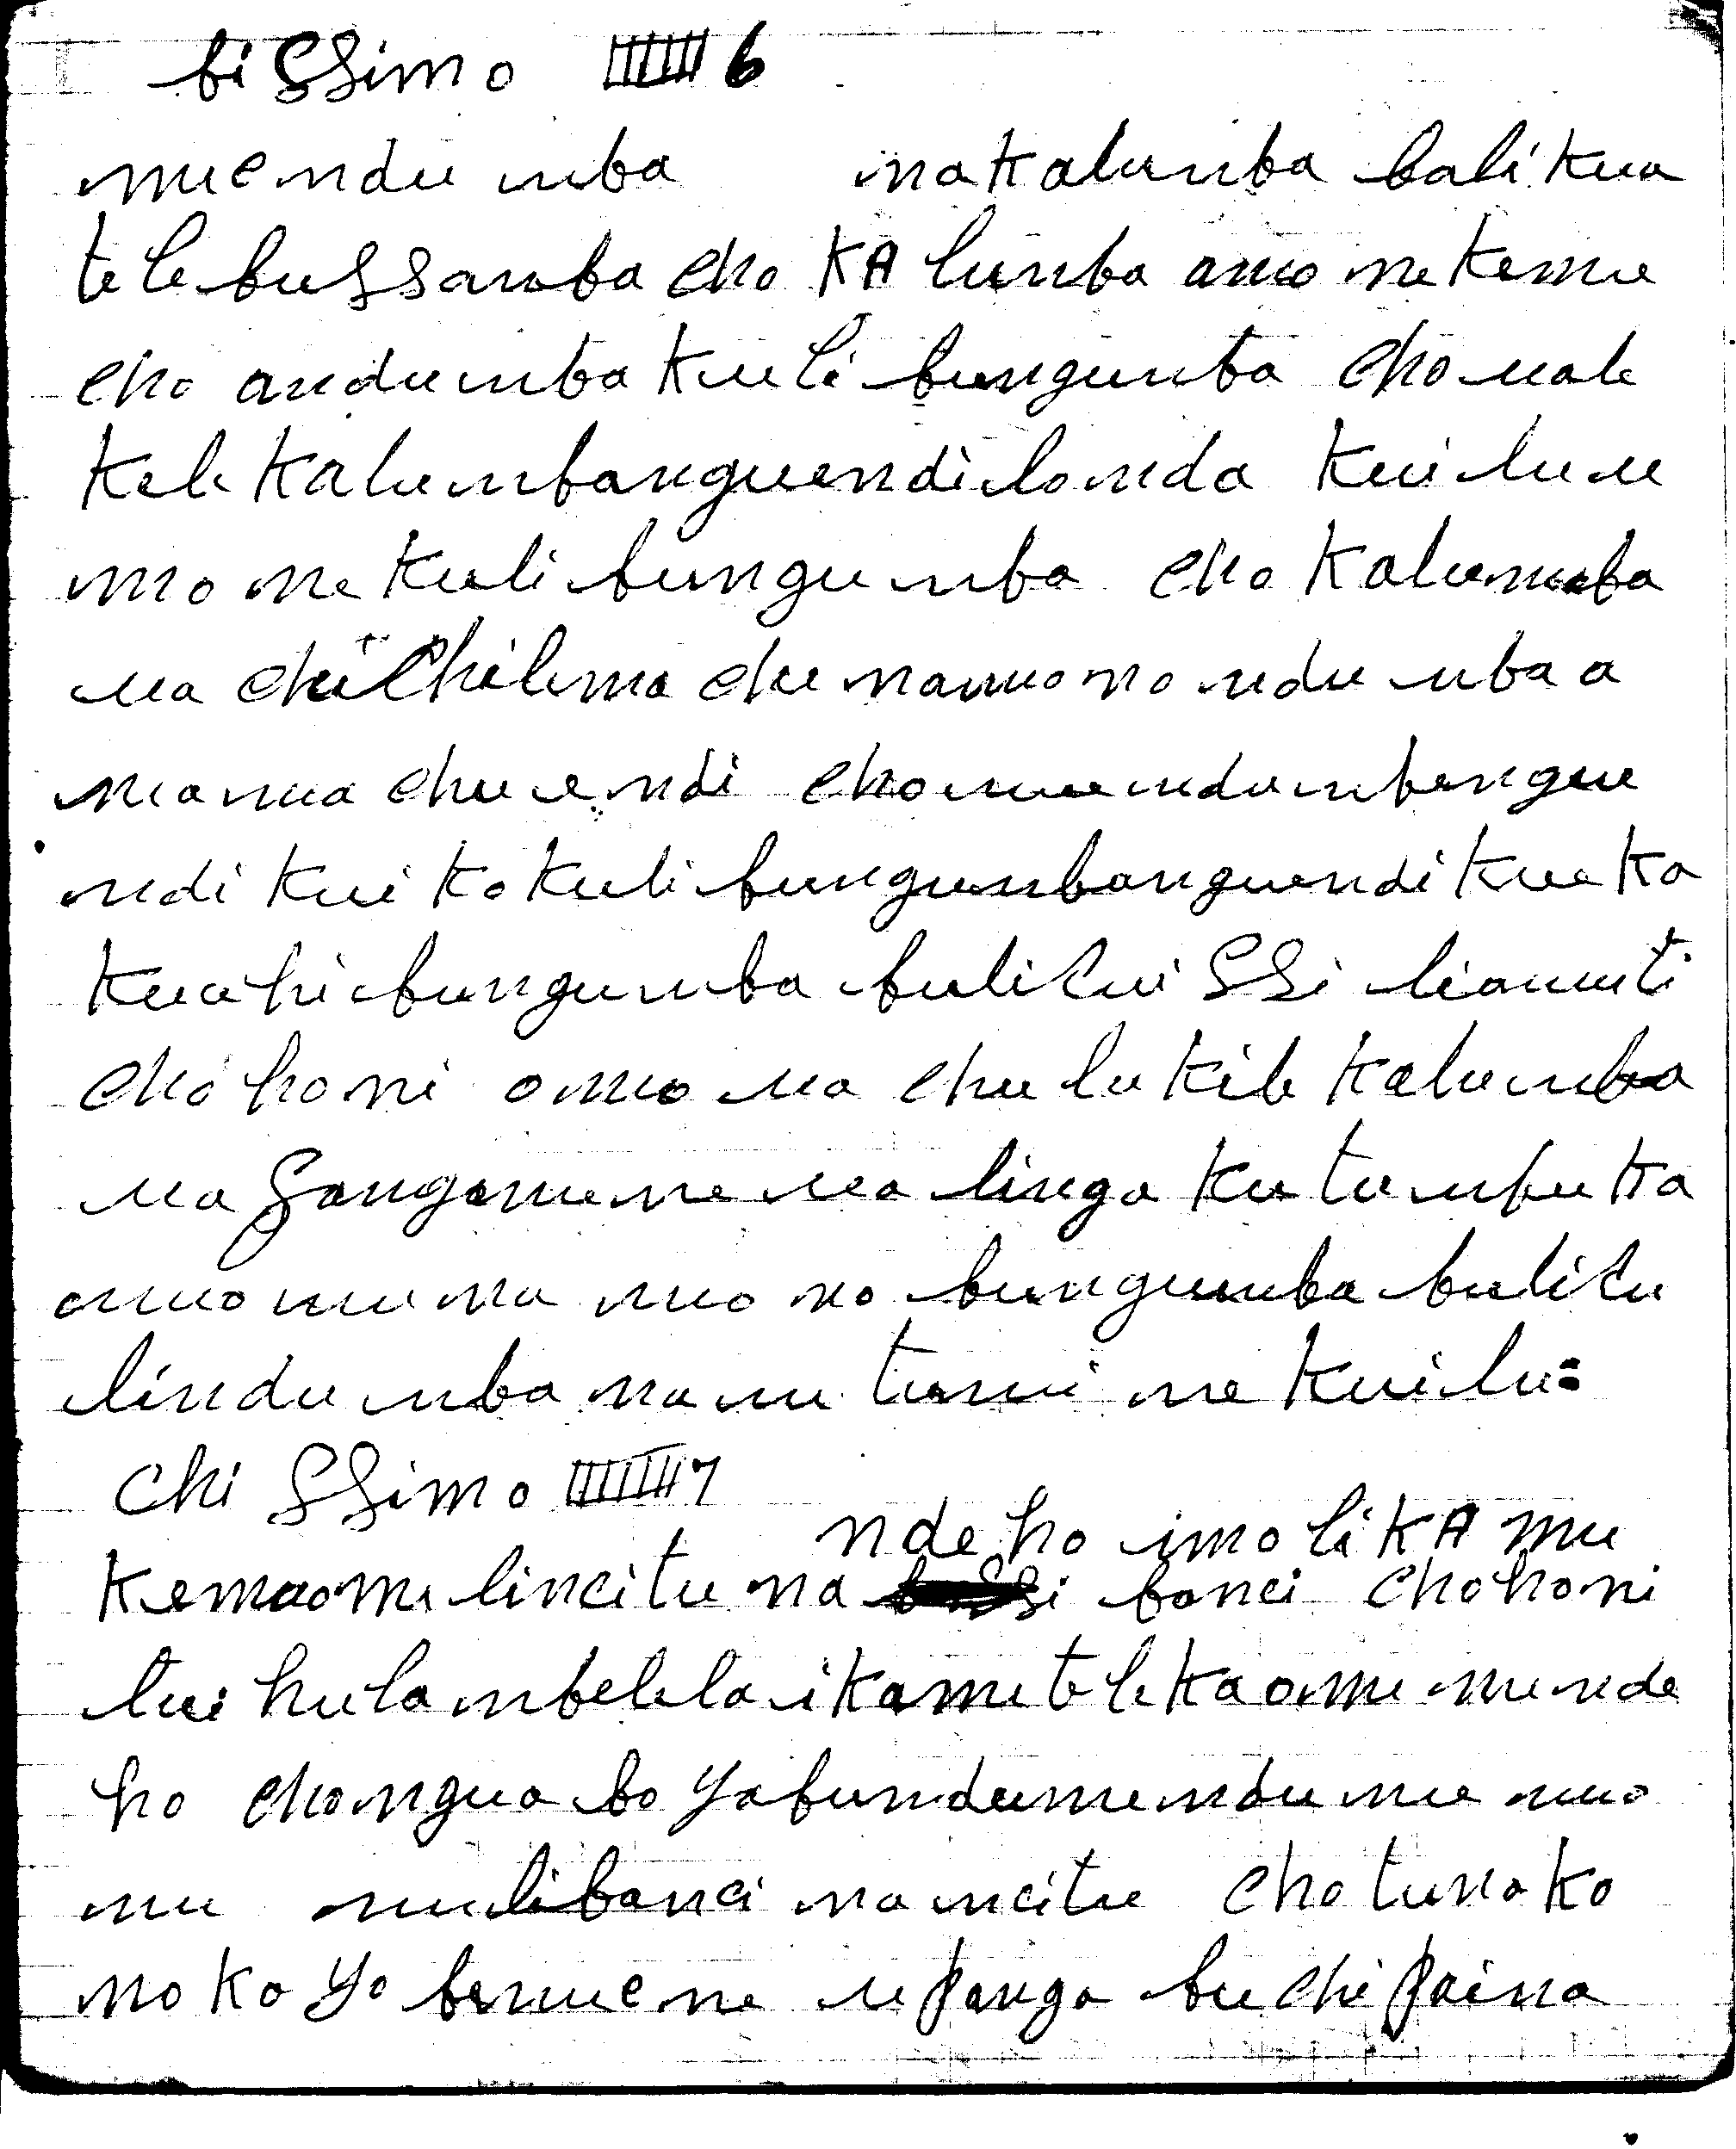 bissimo 6
muendu mba nakalunba balikua
telebussamba cho KA lunba amo nekemue
cho andumba kueli bungunba cho uale
kele kalumbanguendilonda kuiluu
mo ne kuli bungumba cho kalumba
ua chichilema chenamono ndumbaa
manua chuendi chomuendumbangue
ndi kuikokuli bungumbanguendikueka
kuahi bungumba bulitui ssi liamuti
chohoni omo ua chulukile kalumba
ua sanganene ua linga kutumbuka
omo muna mono bungumba bulitu
lindumba namutumine kuilu:
chi ssimo 7
ndeho imo liKA mu
kemaome lincitu na banci chohoni
lui hulambelelaikametelekaome munde
ho chonguo bo yabundumundumue muo
mu mulibanci nancitu chotunoko
noko yo bemuene upanga buchipaina